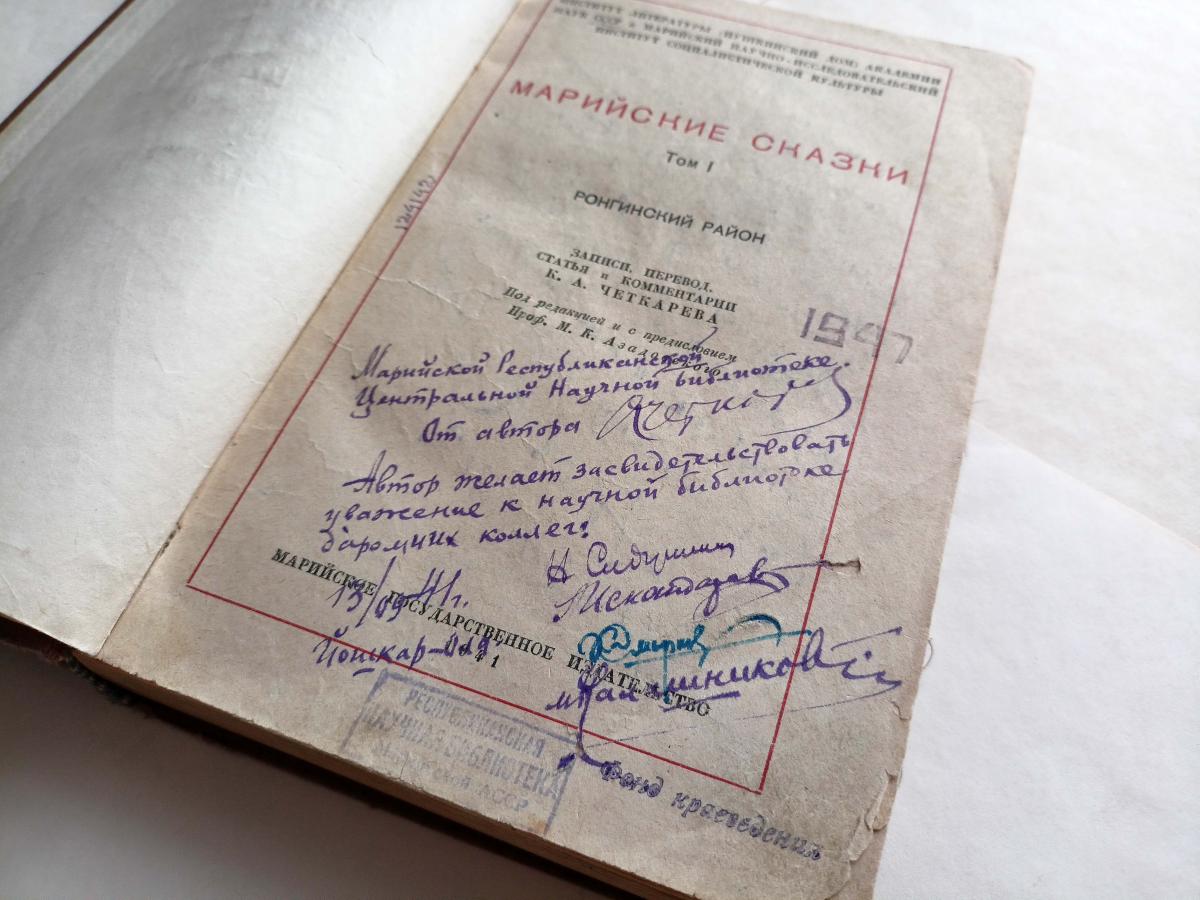 ИНСТИТУТ ЛИТЕРАТУРЫ (ПУШКИНСКИЙ ДОМ) АКАДЕМИИ
НАУК СССР и МАРИЙСКИЙ НАУЧНО-ИССЛЕДОВАТЕЛЬСКИЙ
ИНСТИТУТ СОЦИАЛИСТИЧЕСКОЙ КУЛЬТУРЫ
МАРИЙСКИЕ СКАЗКИ
Том I
РОНГИНСКИЙ РАЙОН
ЗАПИСИ, ПЕРЕВОД,
СТАТЬЯ и КОММЕНТАРИИ
К. А. ЧЕТКАРЕВА
Под редакцией и с предисловием
Проф. М. К. Азадовского
1947
Марийской Республиканской
Центральной Научной библиотеке.
От автора
Автор желает засвидетельствовать
уважение к научной библиотеке
коллег:
13/09 41 г.
МАРИЙСКОЕ ГОСУДАРСТВЕННОЕ ИЗДАТЕЛЬСТВО
1941
Йошкар-Ола
РЕСПУБЛИКАНСКАЯ
НАУЧНАЯ БИБЛИОТЕКА
Марийской АССР
Фонд краеведения